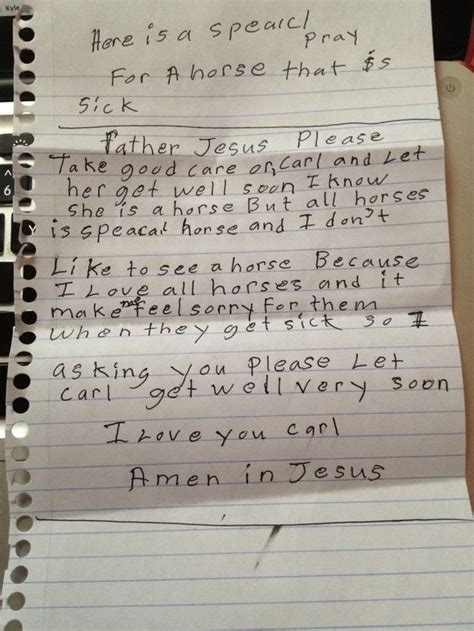 Kyle
Here is a spearcl pray
For A horse that is
sick
Father Jesus Please
Take good care on, Carl and Let
her get well soon I know
she is a horse But all horses
is speacal horse and I don't
Like to see a horse Because
I Love all horses and it
make me feel sorry for them
when they get sick so I
asking you please Let
carl get well very soon
I Love you carl
Amen in Jesus
6